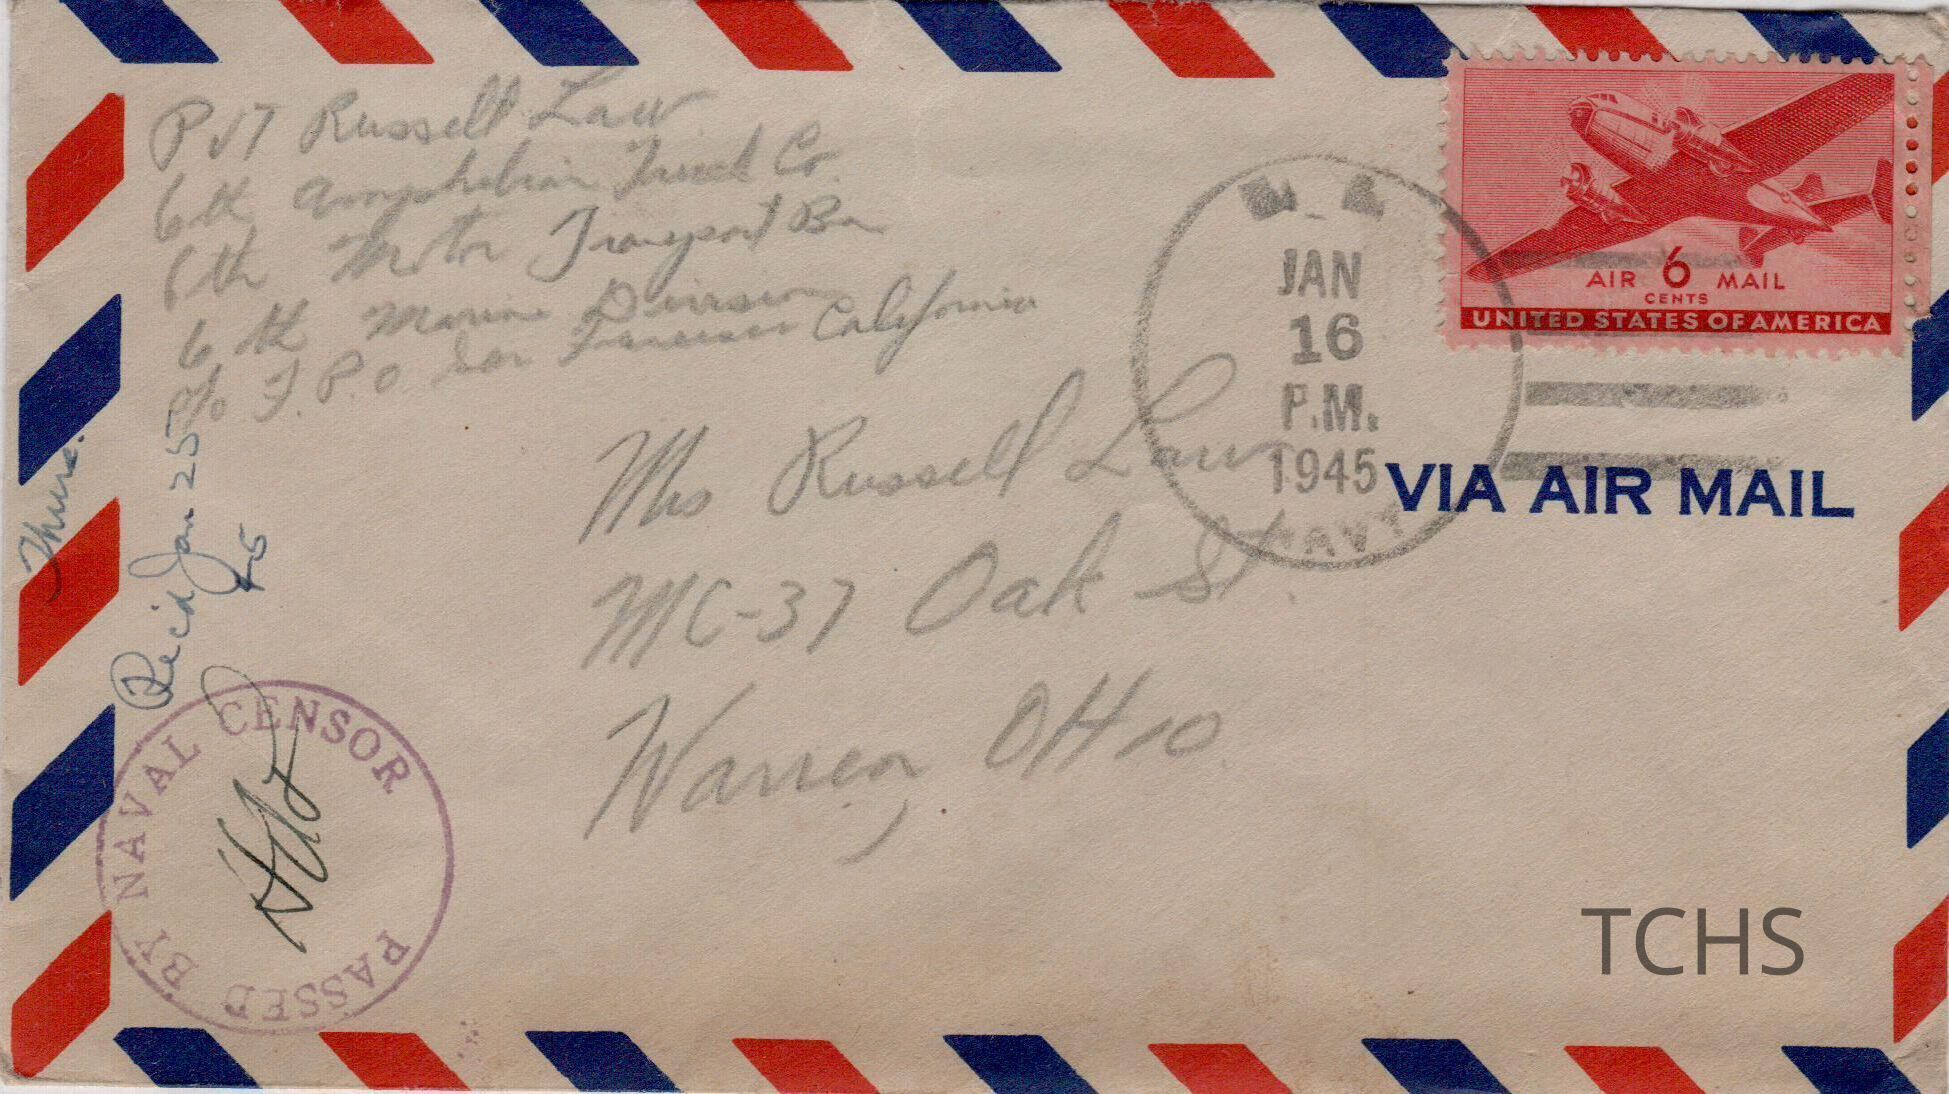 PVT Russell Law
6th Amphibian Truck Co.
6th Motor Transport Bn
6th Marine Division
c/o F.P.O San Francisco California
AIR 6 MAIL
CENTS
UNITED STATES OF AMERICA
JAN
16
P.M.
1945
NAVY
VIA AIR MAIL
Mrs Russell Law
MC-37 Oak St.
Warren, OHIO.
Thurs.
Rec'd Jan 25
45
PASSED BY NAVAL CENSOR
TCHS